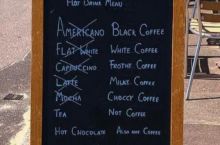 Hot Drink Menu
Americano Black Coffee
Flat White White Coffee
Cappuccino Frothy Coffee
Latte Milky Coffee
Mocha Choccy Coffee
Tea Not Coffee
Hot Chocolate Also not Coffee